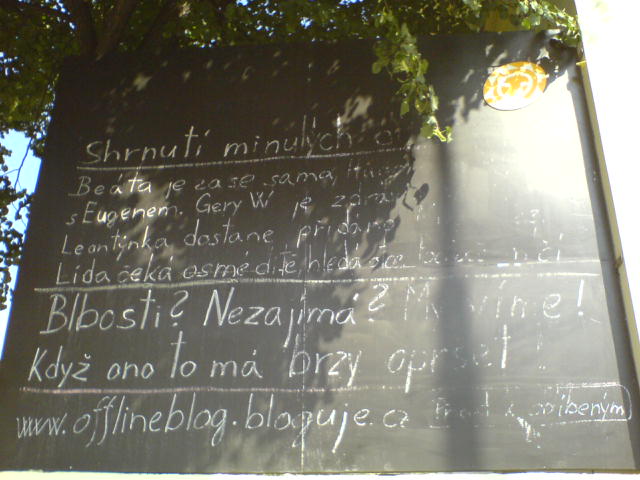 Shrnutí minulých
Beáta je zase sama,
s Eugenem. Gery W je
Leontýnka dostane
Lída čeká osmé dítě, hledá
Blbosti? Nezajímá? My víme!
Když ono to má brzy opršet!
www.offlineblog.bloguje.cz